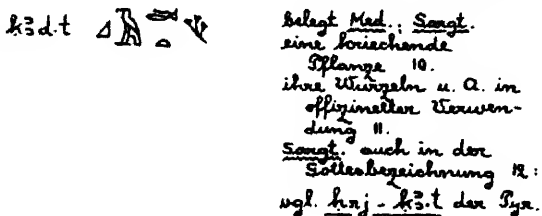 ḳꜣd.t
belegt Med.; Sargt.
eine kriechende
Pflanze 10.
ihre Wurzeln u. A. in
offizineller Verwen-
dung 11.
Sargt. auch in der
Gottesbezeichnung 12:
vgl. ḥrj - ḳꜣ.t der Pyr.